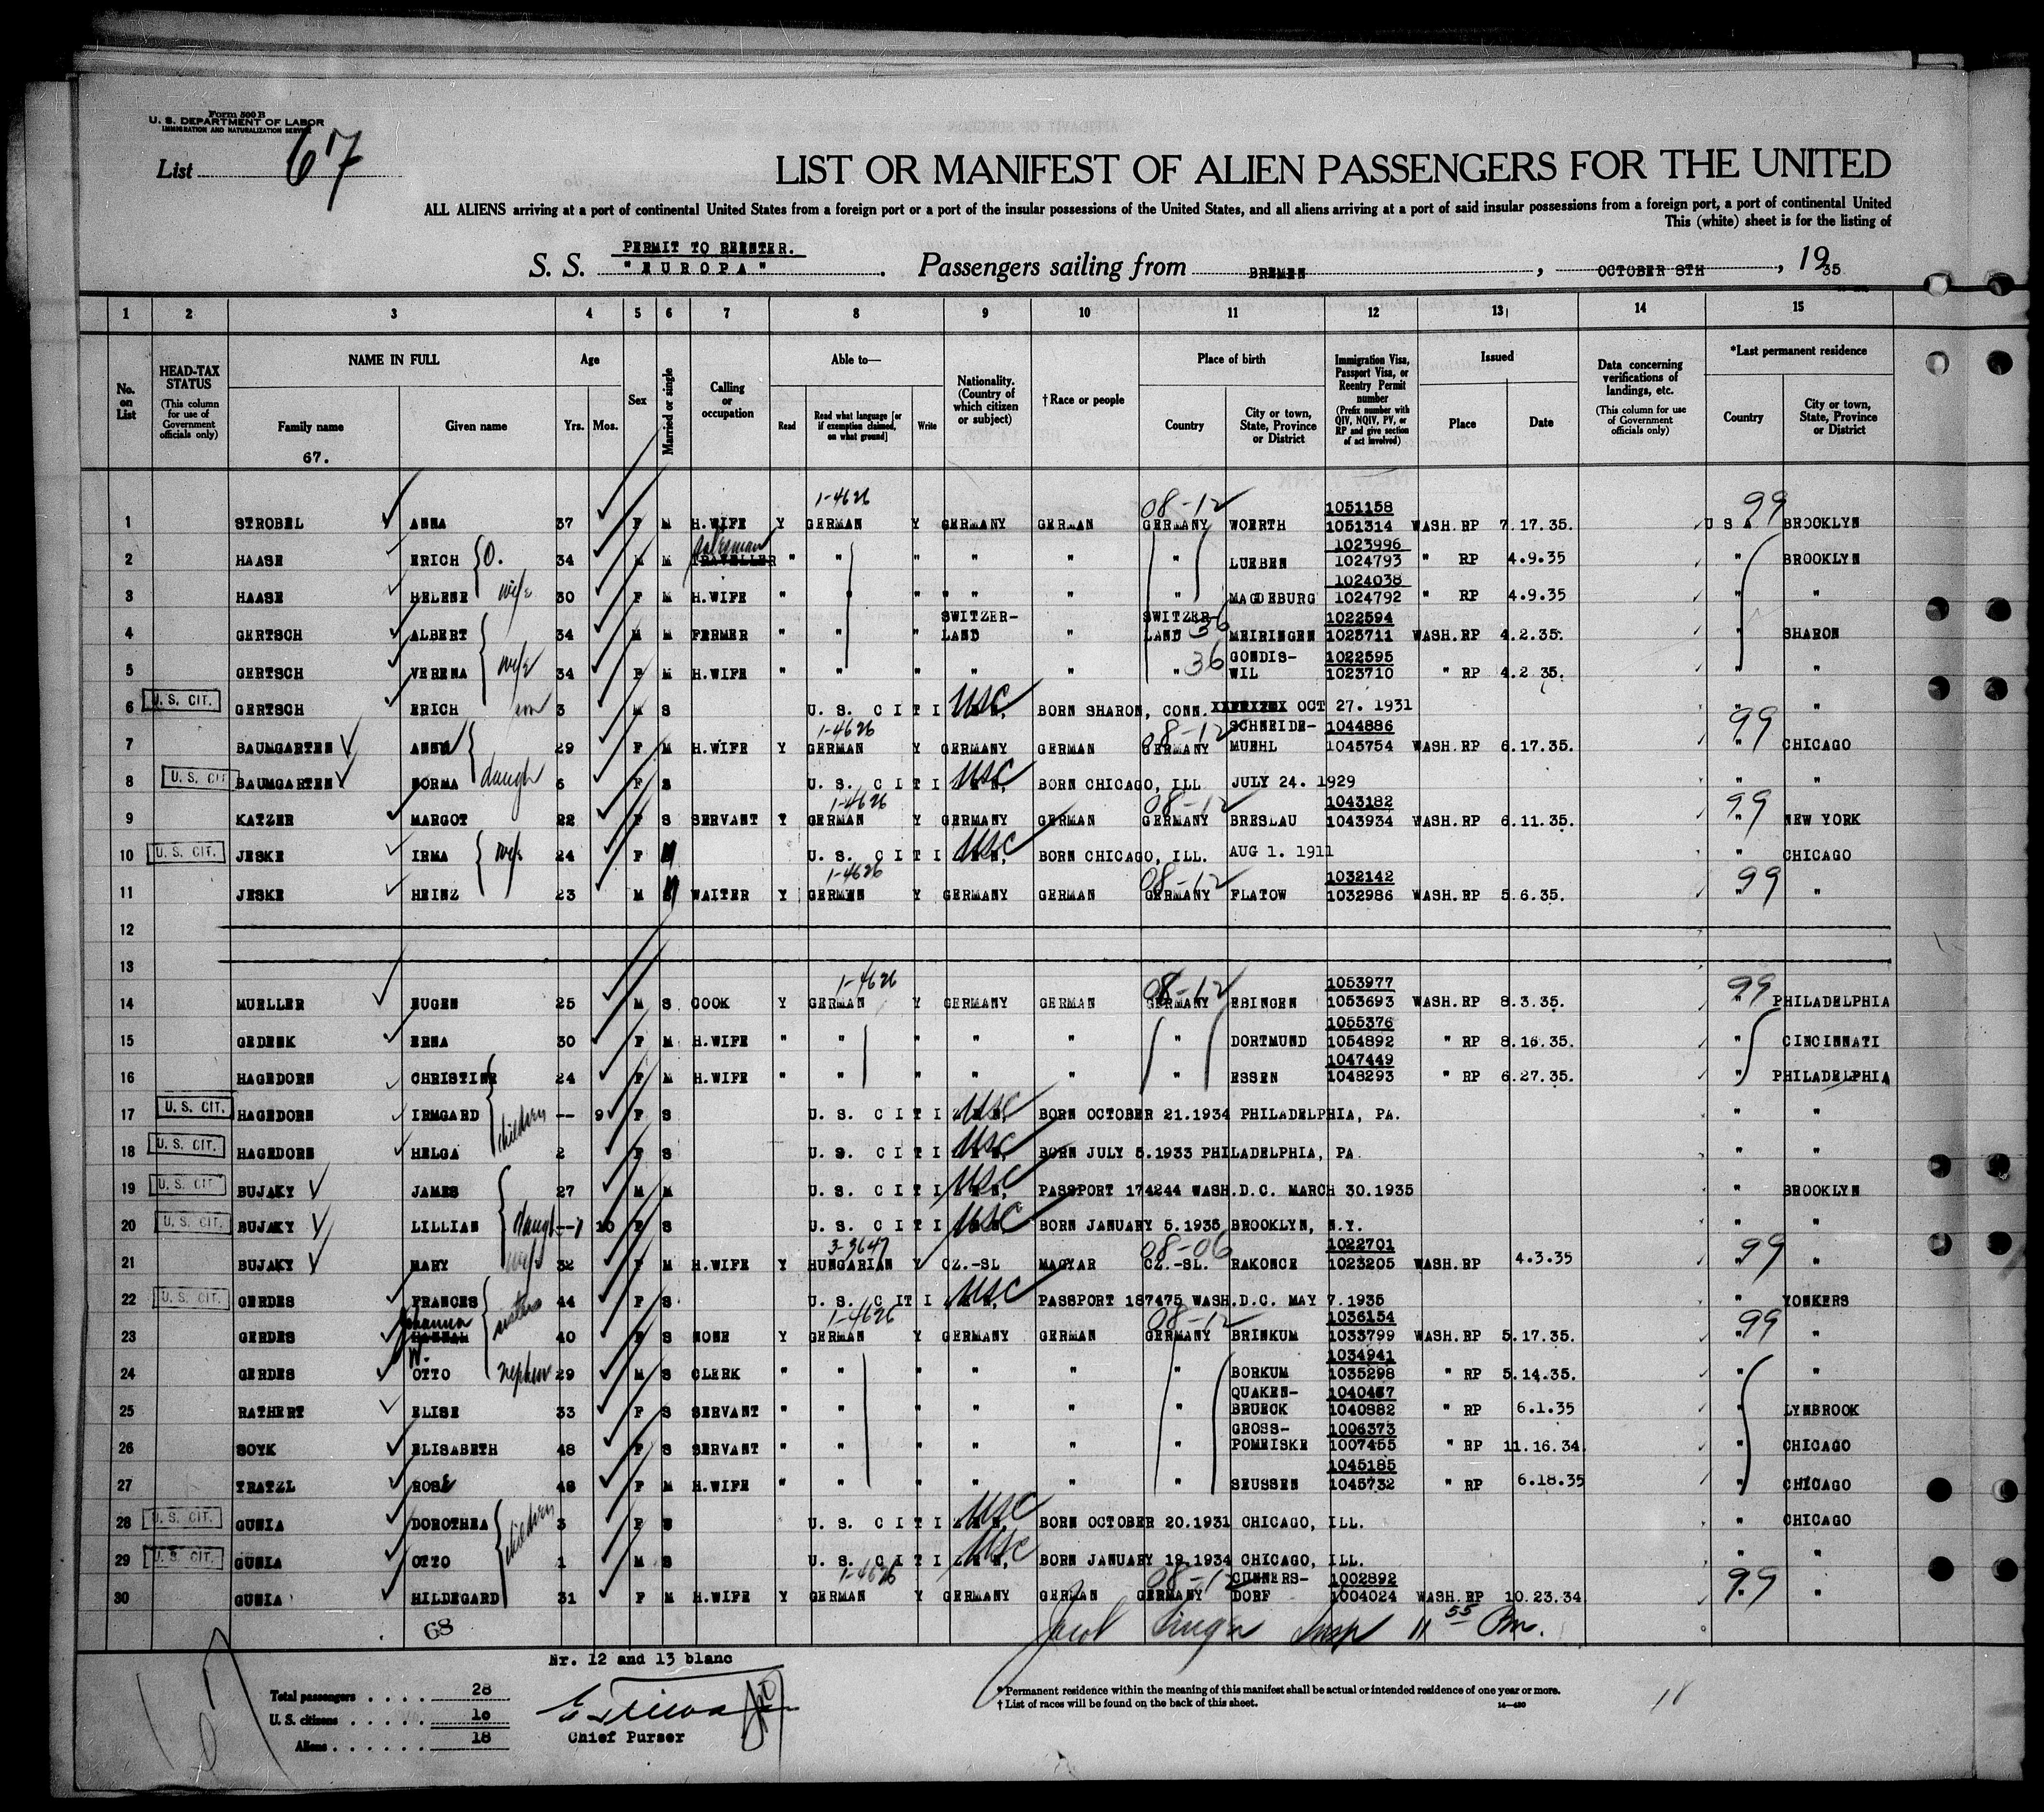 Form 500 B
U. S. DEPARTMENT OF LABOR
IMMIGRATION AND NATURALIZATION SERVICE
List 67
LIST OR MANIFEST OF ALIEN PASSENGERS FOR THE UNITED
ALL ALIENS arriving at a port of continental United States from a foreign port or a port of the insular possessions of the United States, and all aliens arriving at a port of said insular possessions from a foreign port, a port of continental United
This (white) sheet is for the listing of
PERMIT TO REENTER.
S. S. "EUROPA" . Passengers sailing from BREMEN , OCTOBER 8TH , 1935
1 2 3 4 5 6 7 8 9 10 11 12 13 14 15
No. on List
HEAD-TAX STATUS (This column for use of Government officials only)
NAME IN FULL
Family name
67.
Given name
Age
Yrs. Mos.
Sex
Married or single
Calling or occupation
Able to—
Read
Read what language [or if exemption claimed, on what ground]
Write
Nationality. (Country of which citizen or subject)
† Race or people
Place of birth
Country
City or town, State, Province or District
Immigration Visa, Passport Visa, or Reentry Permit number (Prefix number with QIV, NQIV, PV, or RP and give section of act involved)
Issued
Place
Date
Data concerning verifications of landings, etc. (This column for use of Government officials only)
*Last permanent residence
Country
City or town, State, Province or District
1-4626 08-12 1051158 99
1 STROBEL ANNA 37 F M H.WIFE Y GERMAN Y GERMANY GERMAN GERMANY WOERTH 1051314 WASH.RP 7.17.35. U S A BROOKLYN
salesman 1023996
2 HAASE ERICH O. 34 M M TRAVELLER " " " " " " LUEBEN 1024793 " RP 4.9.35 " BROOKLYN
1024038
3 HAASE HELENE wife 30 F M H.WIFE " " " " " " MAGDEBURG 1024792 " RP 4.9.35 " "
SWITZER- SWITZER- 1022594
4 GERTSCH ALBERT 34 M M FERMER " " " LAND " LAND 36 MEIRINGEN 1023711 WASH.RP 4.2.35. " SHARON
GONDIS- 1022595
5 GERTSCH VERENA wife 34 F M H.WIFE " " " " " " 36 WIL 1023710 " RP 4.2 35. " "
6 U. S. CIT. GERTSCH ERICH son 3 M S U. S. CITIZEN, USC BORN SHARON, CONN. OCT 27. 1931 " "
1-4626 08-12 SCHNEIDE- 1044886 99
7 BAUMGARTEN ANNA 29 F M H.WIFE Y GERMAN Y GERMANY GERMAN GERMANY MUEHL 1045754 WASH.RP 6.17.35. " CHICAGO
8 U. S. CIT BAUMGARTEN NORMA daugh 6 F S U. S. CITIZEN, USC BORN CHICAGO, ILL JULY 24. 1929 " "
1-4626 08-12 1043182 99
9 KATZER MARGOT 22 F S SERVANT Y GERMAN Y GERMANY GERMAN GERMANY BRESLAU 1043934 WASH.RP 6.11.35. " NEW YORK
10 U. S. CIT. JESKE IRMA wife 24 F M U. S. CITIZEN, USC BORN CHICAGO, ILL. AUG 1. 1911 " CHICAGO
1-4626 08-12 1032142 99
11 JESKE HEINZ 23 M M WAITER Y GERMEN Y GERMANY GERMAN GERMANY FLATOW 1032986 WASH.RP 5.6.35. " "
12
13
1-4626 08-12 1053977 99
14 MUELLER EUGEN 25 M S COOK Y GERMAN Y GERMANY GERMAN GERMANY EBINGEN 1053693 WASH.RP 8.3.35. " PHILADELPHIA
1055376
15 GEDENK ERNA 30 F M H.WIFE " " " " " " DORTMUND 1054892 " RP 8.16.35. " CINCINNATI
1047449
16 HAGEDORN CHRISTINE 24 F M H.WIFE " " " " " " ESSEN 1048293 " RP 6.27.35. " PHILADELPHIA
17 U. S. CIT. HAGEDORN IRMGARD children -- 9 F S U. S. CITIZEN, USC BORN OCTOBER 21.1934 PHILADELPHIA, PA. " "
18 U. S. CIT. HAGEDORN HELGA 2 F S U. S. CITIZEN, USC BORN JULY 5.1933 PHILADELPHIA, PA. " "
19 U. S. CIT. BUJAKY JAMES 27 M M U. S. CITIZEN, USC PASSPORT 174244 WASH.D.C. MARCH 30.1935 " BROOKLYN
20 U. S. CIT. BUJAKY LILLIAN daugh -- 10 F S U. S. CITIZEN, USC BORN JANUARY 5.1935 BROOKLYN, N.Y. " "
3-3647 08-06 1022701 99
21 BUJAKY MARY wife 32 F M H.WIFE Y HUNGARIAN Y CZ.-SL MAGYAR CZ.-SL. RAKONCE 1023205 WASH.RP 4.3.35 " "
22 U. S. CIT. GERDES FRANCES 44 F S U. S. CITIZEN, USC PASSPORT 187475 WASH.D.C. MAY 7.1935 " YONKERS
Johanna sisters 1-4626 08-12 1036154 99
23 GERDES HANNAH 40 F S NONE Y GERMAN Y GERMANY GERMAN GERMANY BRINKUM 1033799 WASH.RP 5.17.35. " "
W. 1034941
24 GERDES OTTO nephew 29 M S CLERK " " " " " " BORKUM 1035298 " RP 5.14.35. " "
QUAKEN- 1040467
25 RATHERT ELISE 33 F S SERVANT " " " " " " BRUECK 1040882 " RP 6.1.35 " LYNBROOK
GROSS- 1006373
26 SOYK ELISABETH 48 F S SERVANT " " " " " " POMEISKE 1007455 " RP 11.16.34 " CHICAGO
1045185
27 TRATZL ROSE 48 F M H.WIFE " " " " " " SEUSSEN 1045732 " RP 6.18.35 " CHICAGO
28 U. S. CIT. GUNIA DOROTHEA children 3 F S U. S. CITIZEN, USC BORN OCTOBER 20.1931 CHICAGO, ILL. " CHICAGO
29 U. S. CIT. GUNIA OTTO 1 M S U. S. CITIZEN, USC BORN JANUARY 19.1934 CHICAGO, ILL. " "
1-4626 08-12 CUNNERS- 1002892 99
30 GUNIA HILDEGARD 31 F M H.WIFE Y GERMAN Y GERMANY GERMAN GERMANY DORF 1004024 WASH.RP 10.23.34 " "
68 Jacob Singer Insp 11 55 Pm.
Nr. 12 and 13 blanc
Total passengers . . . . 28
U. S. citizens . . . . . 10
Aliens . . . . . . 18
Chief Purser
* Permanent residence within the meaning of this manifest shall be actual or intended residence of one year or more.
† List of races will be found on the back of this sheet.
14—430